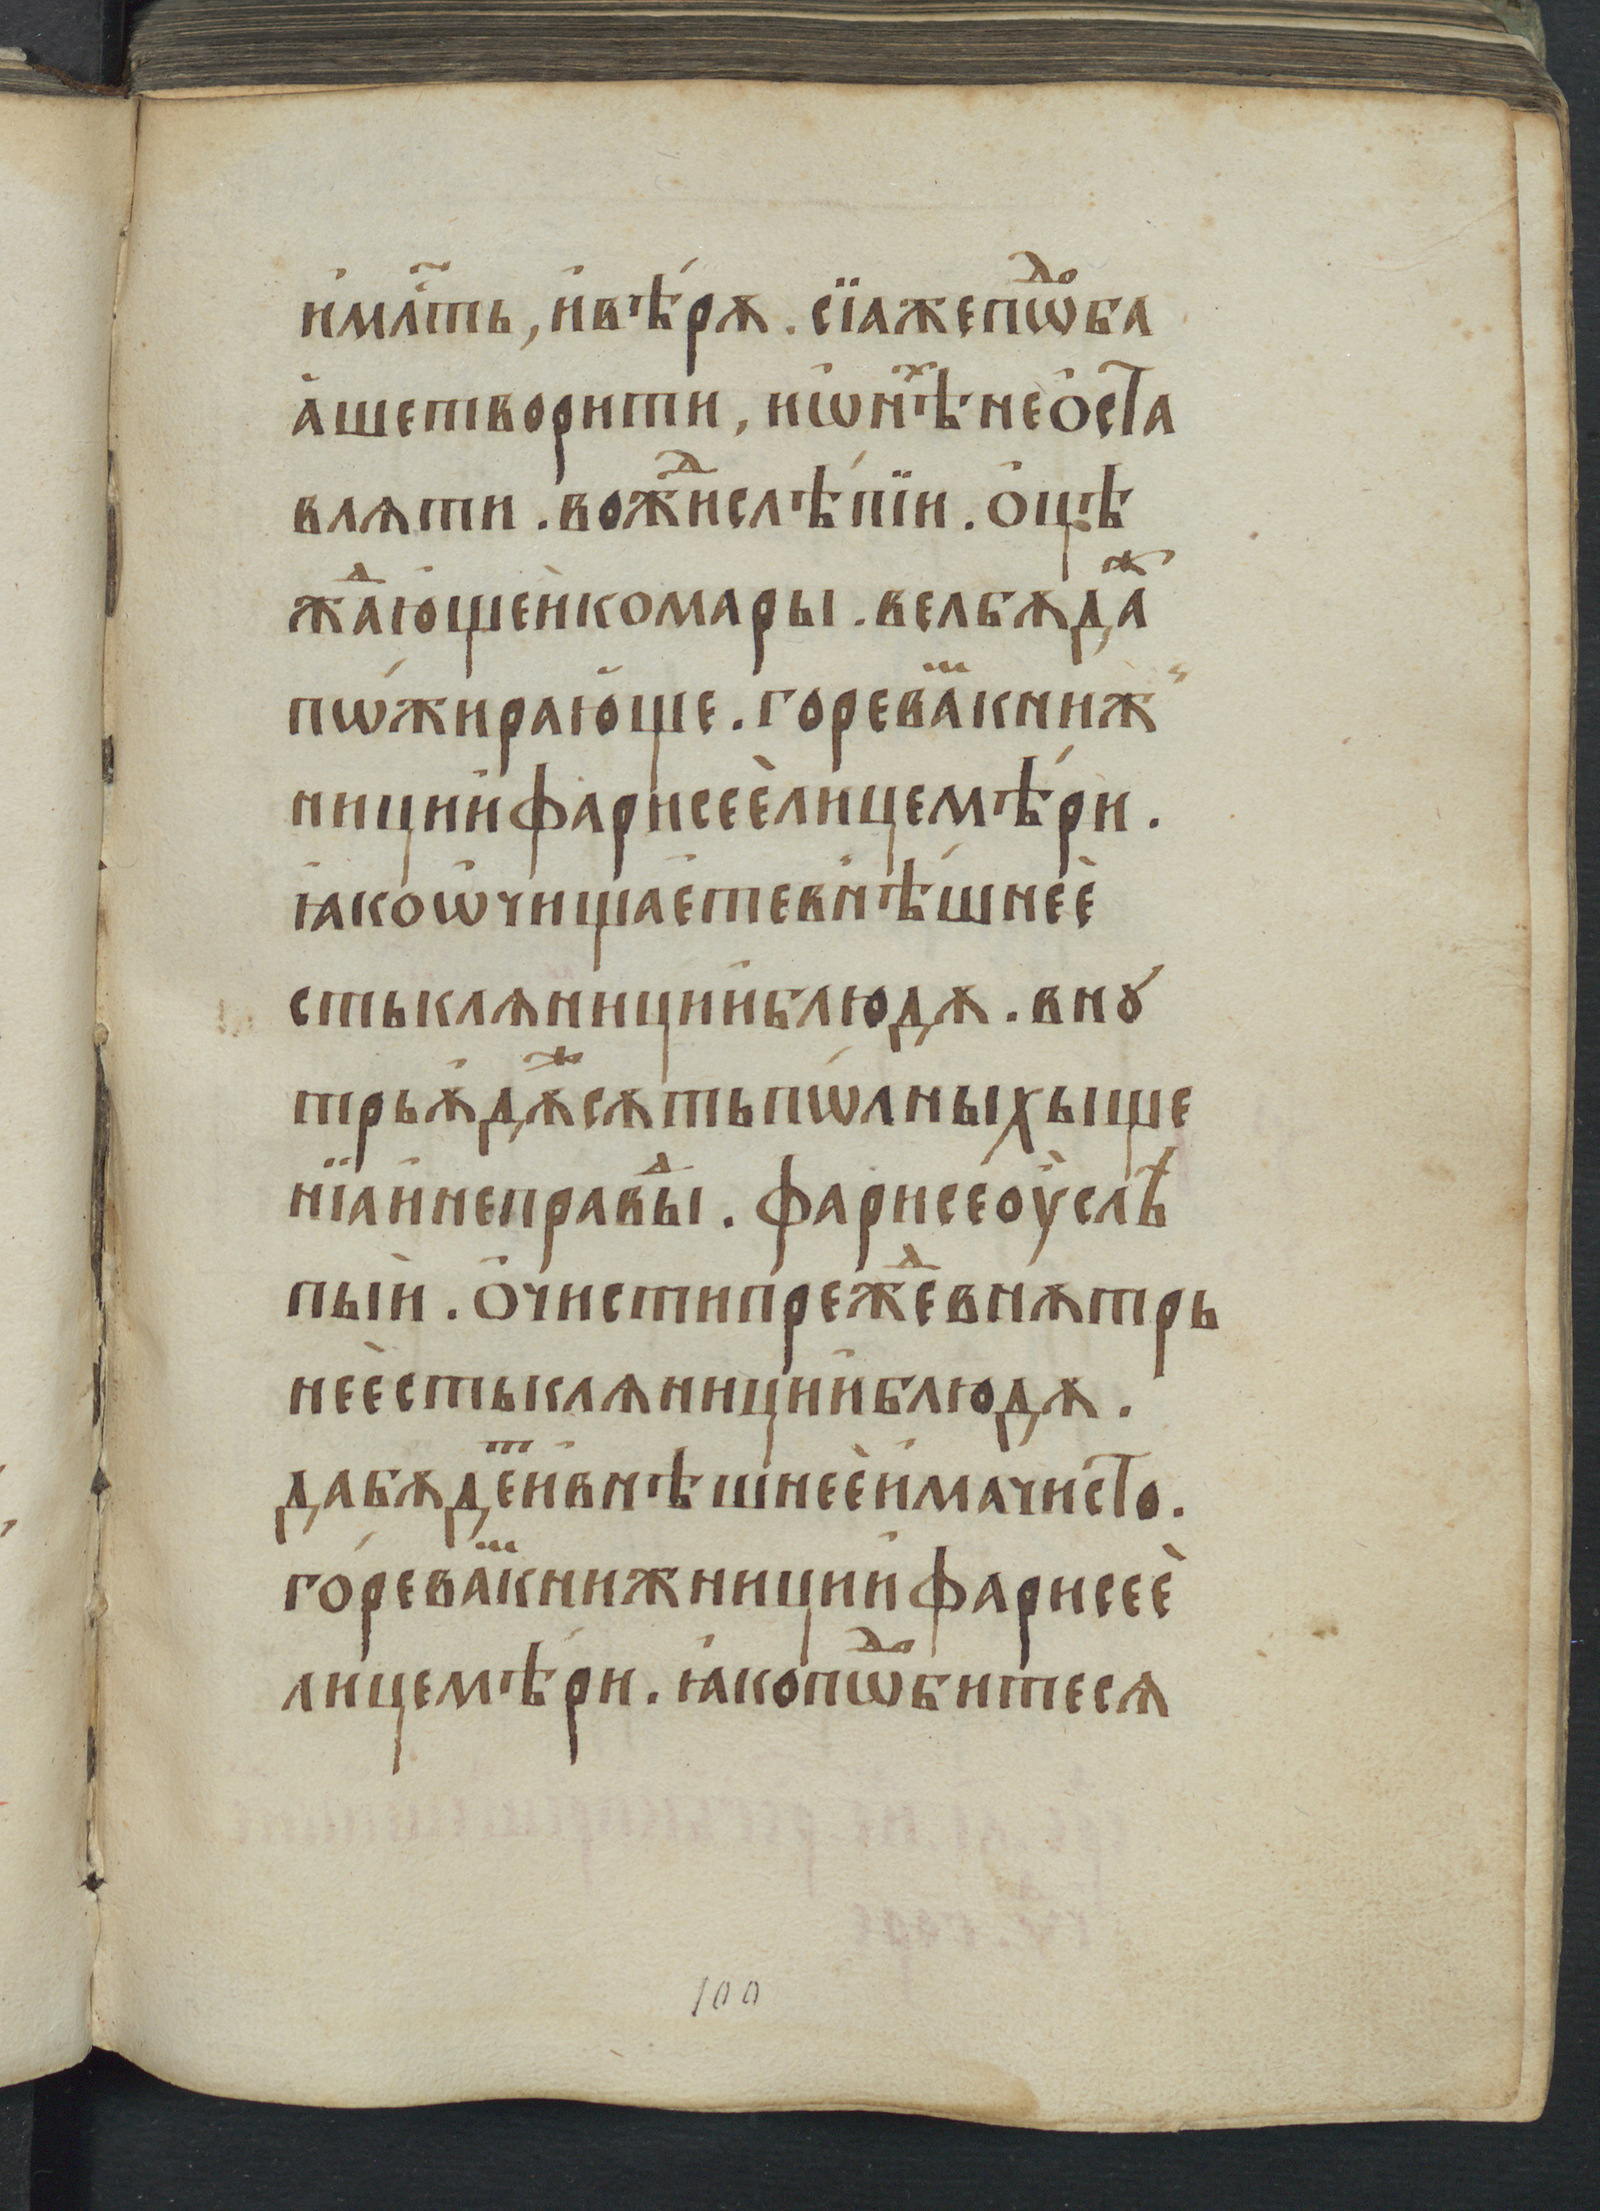 и҆мл҃ть, и҆вѣ́рѫ. сїажепѡⷣⷪба
а҆шетворити, и҆ѡ҆нѣⷯ не҆ о҆ста
влѧти. вожⷣислѣ́пїи. о҆цѣ
жⷣа҆ю҆щеѝкомары. велбѫдаⷤ
пѡ́жираю҆ще. горева̏мⷨкниж
ници҆и҆фарисеѐлицемѣ́ри.
ꙗ҆коѡ҆чищае҆тевн҆ѣ́шнеѐ
стькланици҆и҆блюдѫ. внꙋ
трьѫ҆дѫⷤсѧтьпѡ́лныхьище
нїаи҆неправⷣы. фарисео҆у҆слѣ
пыѝ. о҆чистипрежⷣе҆внѫтрь
неѐстьклѧници҆и҆блюдѫ.
дабѫдеⷮи҆внѣшнеѐи҆мачисто.
го́рева̏мⷨкнижници҆и҆фарисеѐ
лицемѣ́ри. ꙗ҆копѡⷣⷪбитесѧ
100